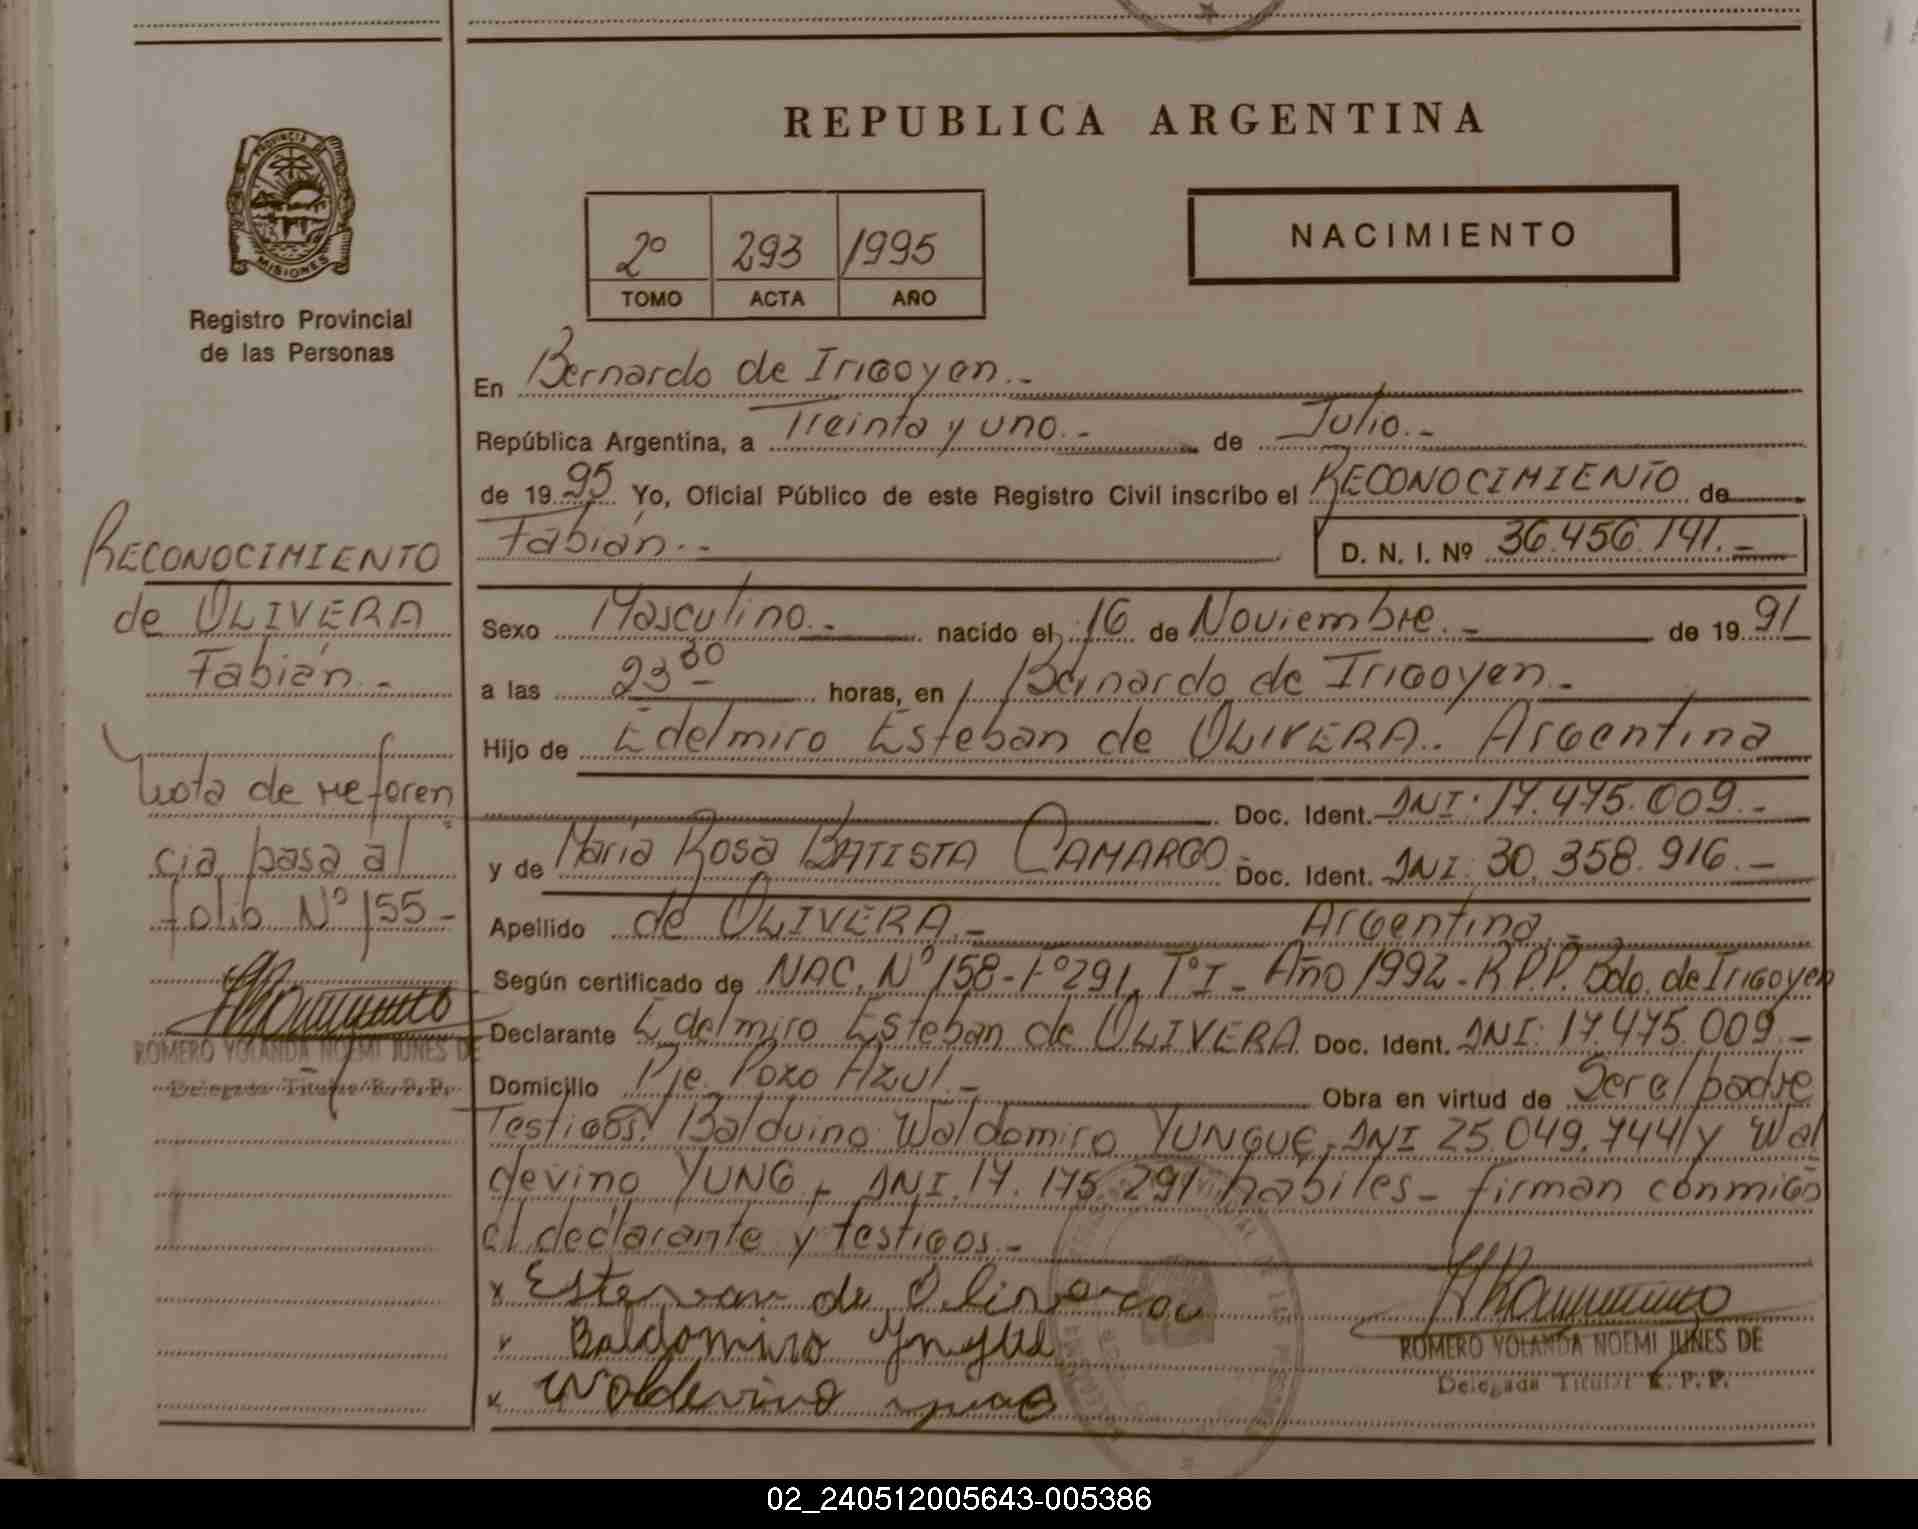 REPUBLICA ARGENTINA
PROVINCIA DE
MISIONES
Registro Provincial
de las Personas
2º 293 1995
TOMO ACTA AÑO
NACIMIENTO
En Bernardo de Irigoyen.-
República Argentina, a Treinta y uno.- de Julio.-
de 1995 Yo, Oficial Público de este Registro Civil inscribo el RECONOCIMIENTO de
Fabián.- D. N. I. Nº 36.456.191.-
Sexo Masculino.- nacido el 16 de Noviembre.- de 1991
a las 23 30 horas, en Bernardo de Irigoyen.-
Hijo de Edelmiro Esteban de OLIVERA. Argentina
Doc. Ident. DNI: 17.475.009.-
y de María Rosa BATISTA CAMARGO Doc. Ident. DNI: 30.358.916.-
Apellido de OLIVERA.- Argentina.-
Según certificado de NAC. Nº 158-Fº291. TºI - Año 1992 - R.P.P. Bdo. de Irigoyen
Declarante Edelmiro Esteban de OLIVERA Doc. Ident. DNI: 17.475.009.-
Domicilio Pje. Pozo Azul.- Obra en virtud de Ser el padre
Testigos: Balduino Waldomiro YUNGUE, DNI 25.049.744 y Wal
devino YUNG, DNI. 17.175.291 hábiles - firman conmigo
el declarante y testigos.-
RECONOCIMIENTO
de OLIVERA
Fabián.-
Nota de referen
cia pasa al
folio Nº 155-
ROMERO YOLANDA NOEMI JUNES DE
Delegada Titular R. P. P.
x Estevan de
Baldomiro
x Waldevino
ROMERO YOLANDA NOEMI JUNES DE
Delegada Titular R. P. P.
02_240512005643-005386